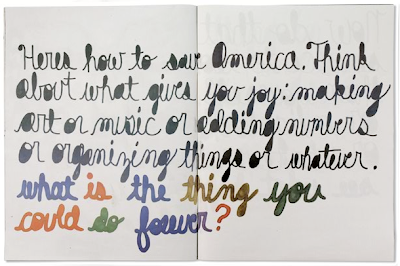 Heres how to save America. Think
about what gives you joy: making
art or music or adding numbers
or organizing things or whatever.
what is the thing you
could do forever?